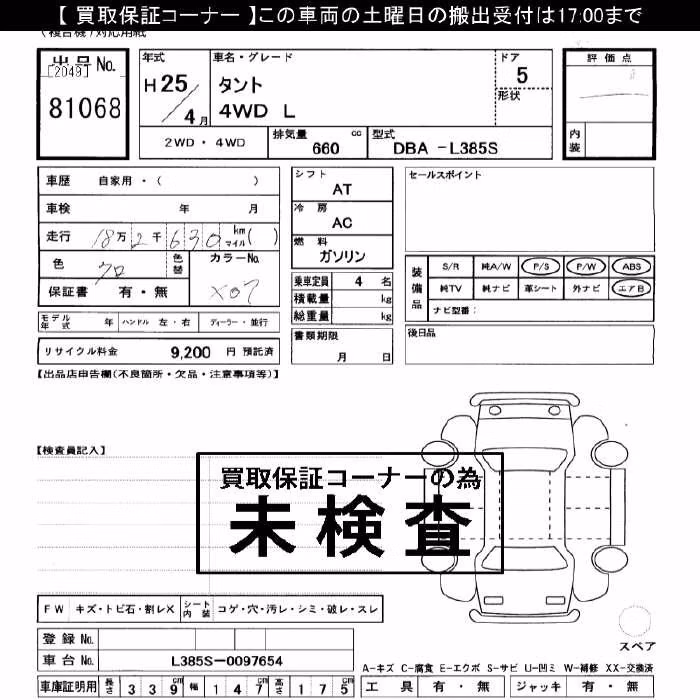 【 買取保証コーナー 】この車両の土曜日の搬出受付は17:00まで
(複合機)対応用紙
出品No.
[2049]
81068
年式
H 25 / 4月
車名・グレード
タント
4WD L
ドア
5
形状
評価点
内装
2WD・4WD
排気量 660 cc
型式 DBA -L385S
車歴 自家用・( )
車検 年 月
走行 18万2千630 km マイル( )
色 クロ 色替
カラーNo.
X07
保証書 有・無
モデル年式 年 ハンドル 左・右 ディーラー・並行
リサイクル料金 9,200 円 預託済
シフト
AT
冷房
AC
燃料
ガソリン
乗車定員 4 名
積載量 kg
総重量 kg
書類期限
月 日
セールスポイント
装備品
S/R 純A/W P/S P/W ABS
純TV 純ナビ 革シート 外ナビ エアB
ナビ型番:
後日品
【出品店申告欄(不良箇所・欠品・注意事項等)】
【検査員記入】
買取保証コーナーの為
未検査
FW キズ・トビ石・割レX シート内装 コゲ・穴・汚レ・シミ・破レ・スレ
登録No.
車台No. L385S-0097654
車庫証明用 長さ 339cm 幅 147cm 高さ 175cm
スペア
A-キズ C-腐食 E-エクボ S-サビ U-凹ミ W-補修 XX-交換済
工具 有・無 ジャッキ 有・無